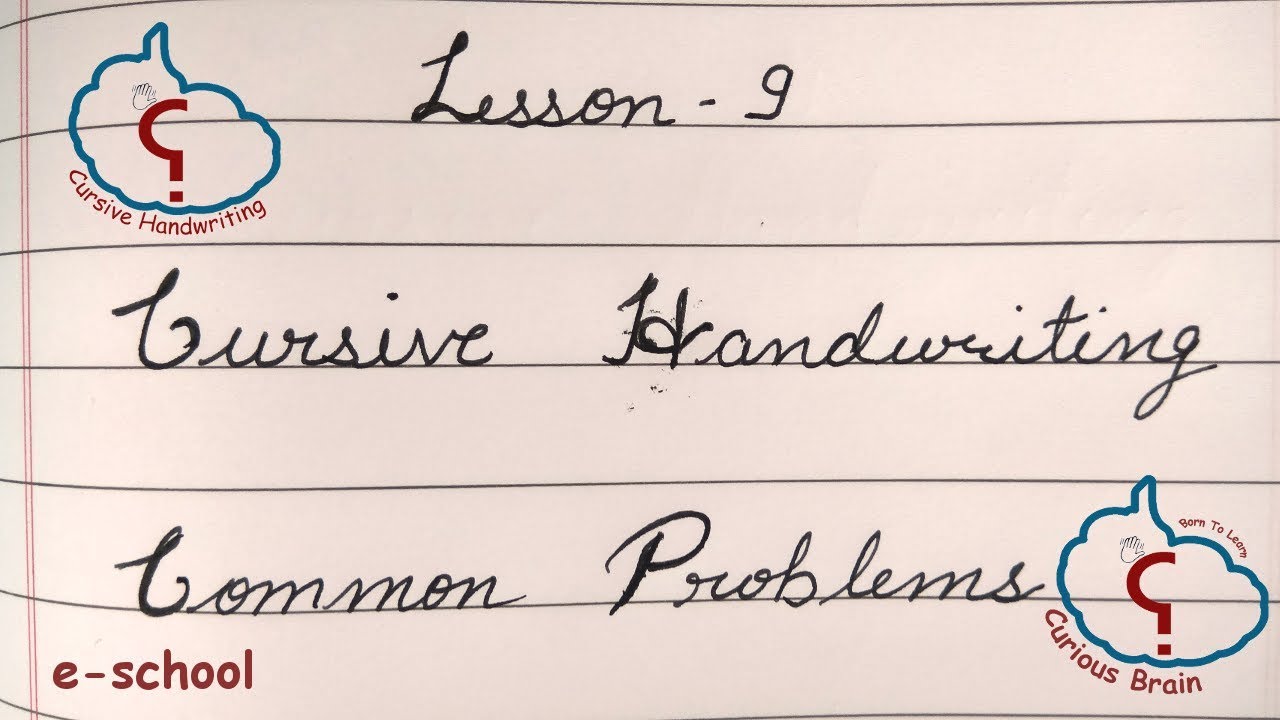 Lesson - 9
Cursive Handwriting
Cursive Handwriting
Common Problems
Born To Learn
Curious Brain
e-school